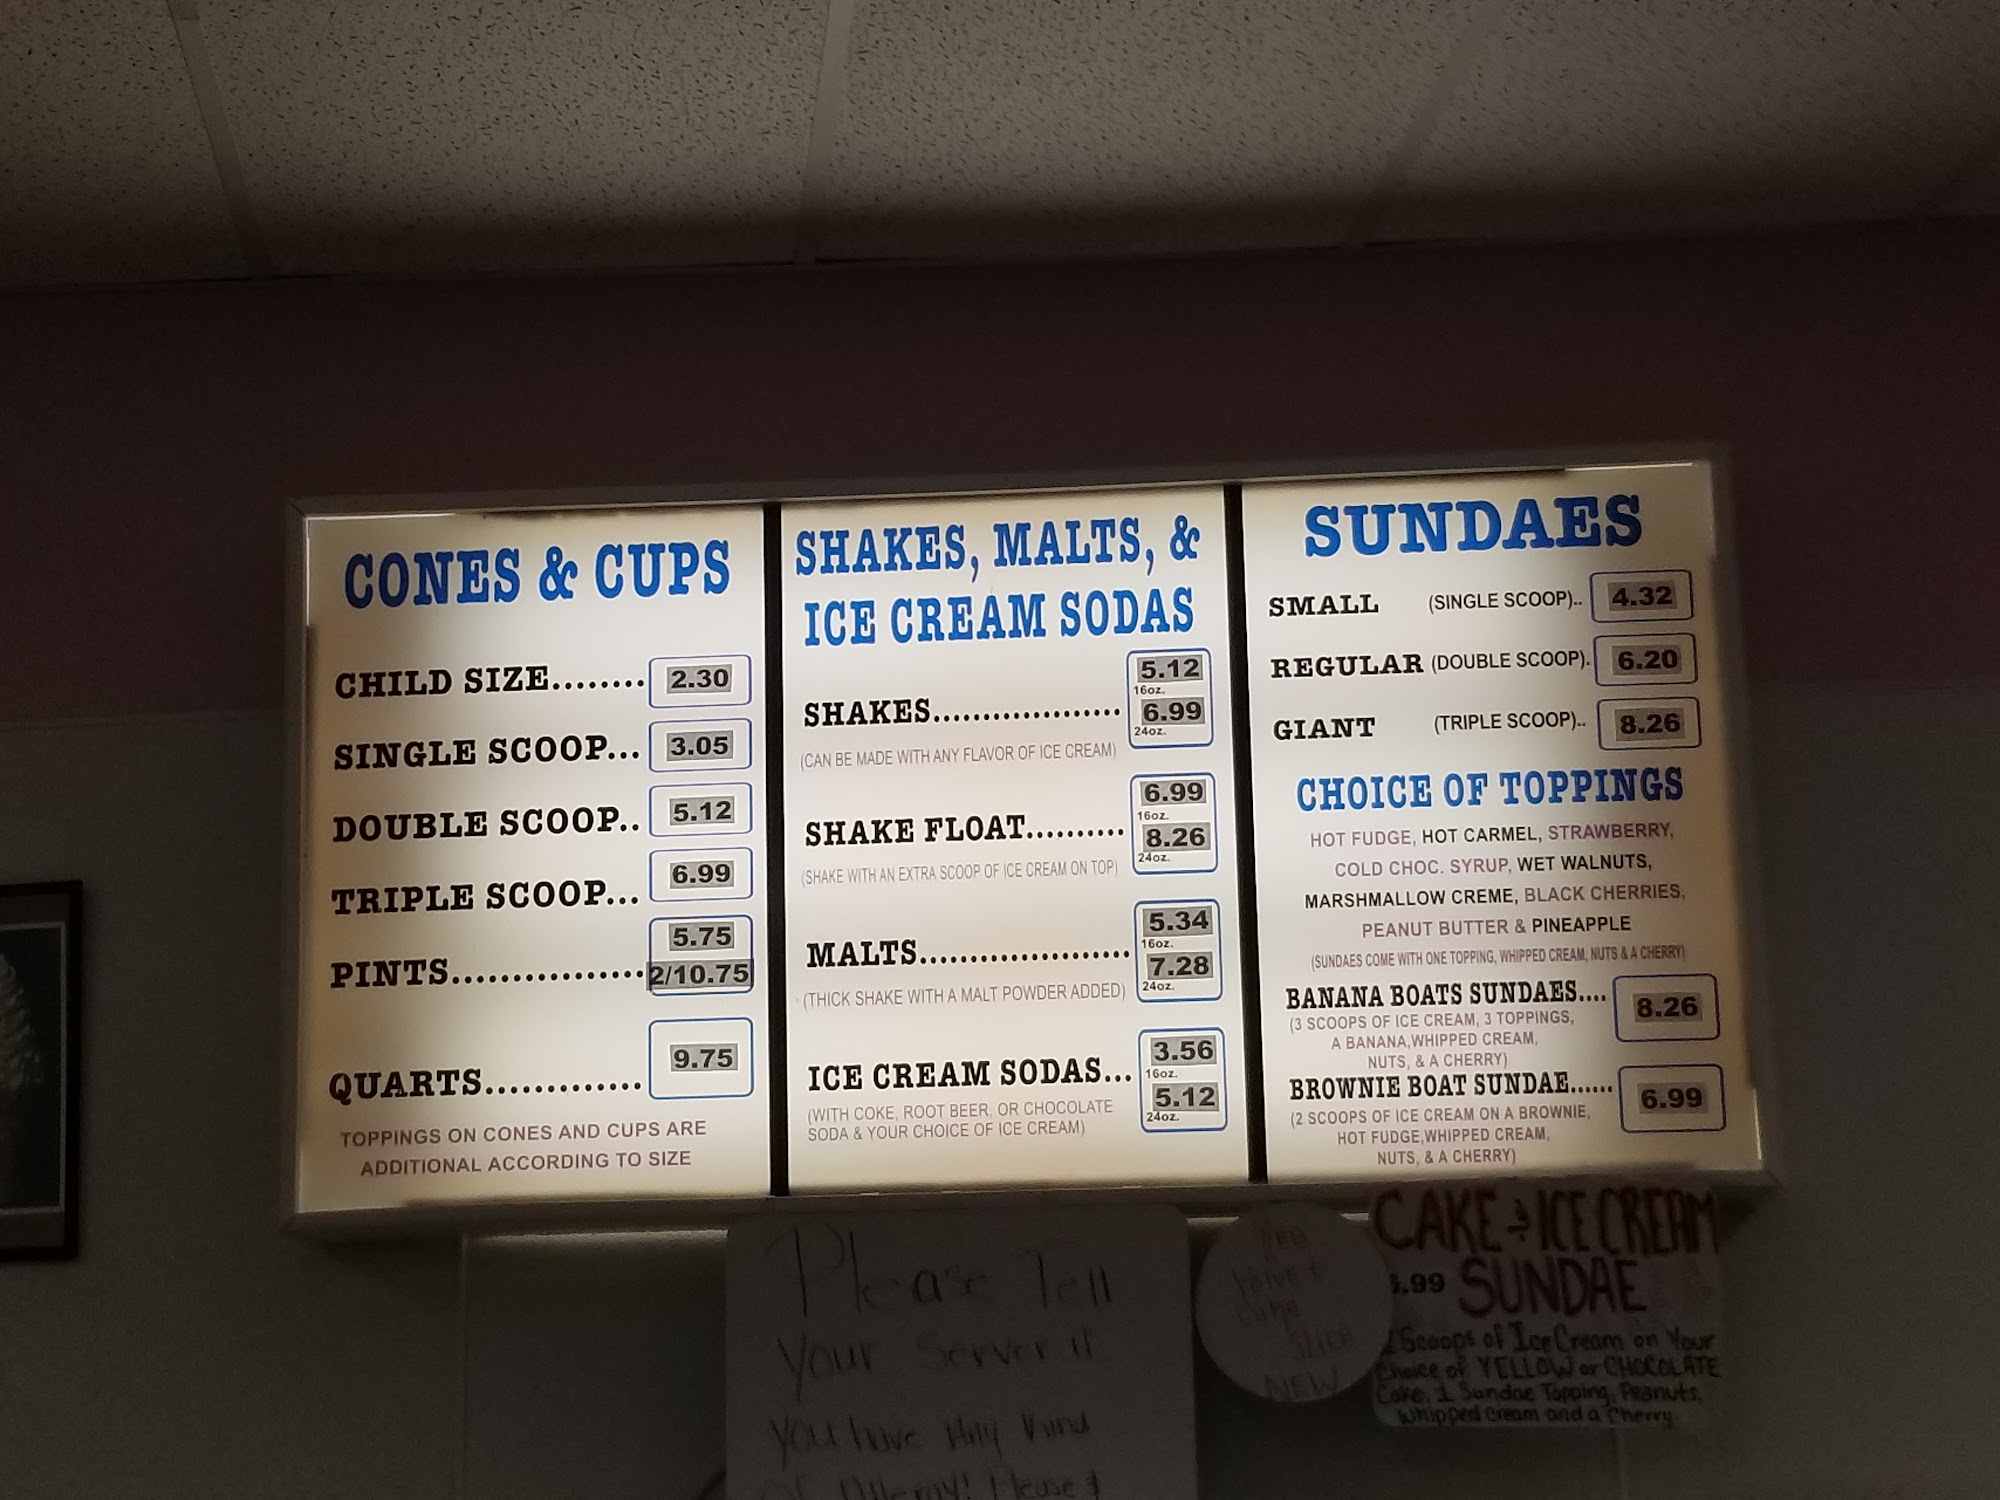 CONES & CUPS
CHILD SIZE........ 2.30
SINGLE SCOOP... 3.05
DOUBLE SCOOP.. 5.12
TRIPLE SCOOP... 6.99
5.75
PINTS................ 2/10.75
QUARTS............. 9.75
TOPPINGS ON CONES AND CUPS ARE
ADDITIONAL ACCORDING TO SIZE
SHAKES, MALTS, &
ICE CREAM SODAS
5.12
16oz.
SHAKES................... 6.99
24oz.
(CAN BE MADE WITH ANY FLAVOR OF ICE CREAM)
6.99
16oz.
SHAKE FLOAT.......... 8.26
24oz.
(SHAKE WITH AN EXTRA SCOOP OF ICE CREAM ON TOP)
5.34
16oz.
MALTS...................... 7.28
24oz.
(THICK SHAKE WITH A MALT POWDER ADDED)
3.56
16oz.
ICE CREAM SODAS... 5.12
24oz.
(WITH COKE, ROOT BEER, OR CHOCOLATE
SODA & YOUR CHOICE OF ICE CREAM)
SUNDAES
SMALL (SINGLE SCOOP).. 4.32
REGULAR (DOUBLE SCOOP). 6.20
GIANT (TRIPLE SCOOP).. 8.26
CHOICE OF TOPPINGS
HOT FUDGE, HOT CARMEL, STRAWBERRY,
COLD CHOC. SYRUP, WET WALNUTS,
MARSHMALLOW CREME, BLACK CHERRIES,
PEANUT BUTTER & PINEAPPLE
(SUNDAES COME WITH ONE TOPPING, WHIPPED CREAM, NUTS & A CHERRY)
BANANA BOATS SUNDAES.... 8.26
(3 SCOOPS OF ICE CREAM, 3 TOPPINGS,
A BANANA,WHIPPED CREAM,
NUTS, & A CHERRY)
BROWNIE BOAT SUNDAE...... 6.99
(2 SCOOPS OF ICE CREAM ON A BROWNIE,
HOT FUDGE,WHIPPED CREAM,
NUTS, & A CHERRY)
Please Tell
your Server if
you have Any kind
of Allergy! Please
Red
Velvet
Cake
SLICE
NEW
CAKE & ICE CREAM
.99 SUNDAE
2 Scoops of Ice Cream on Your
Choice of YELLOW or CHOCOLATE
Cake, 1 Sundae Topping, Peanuts,
Whipped Cream and a Cherry